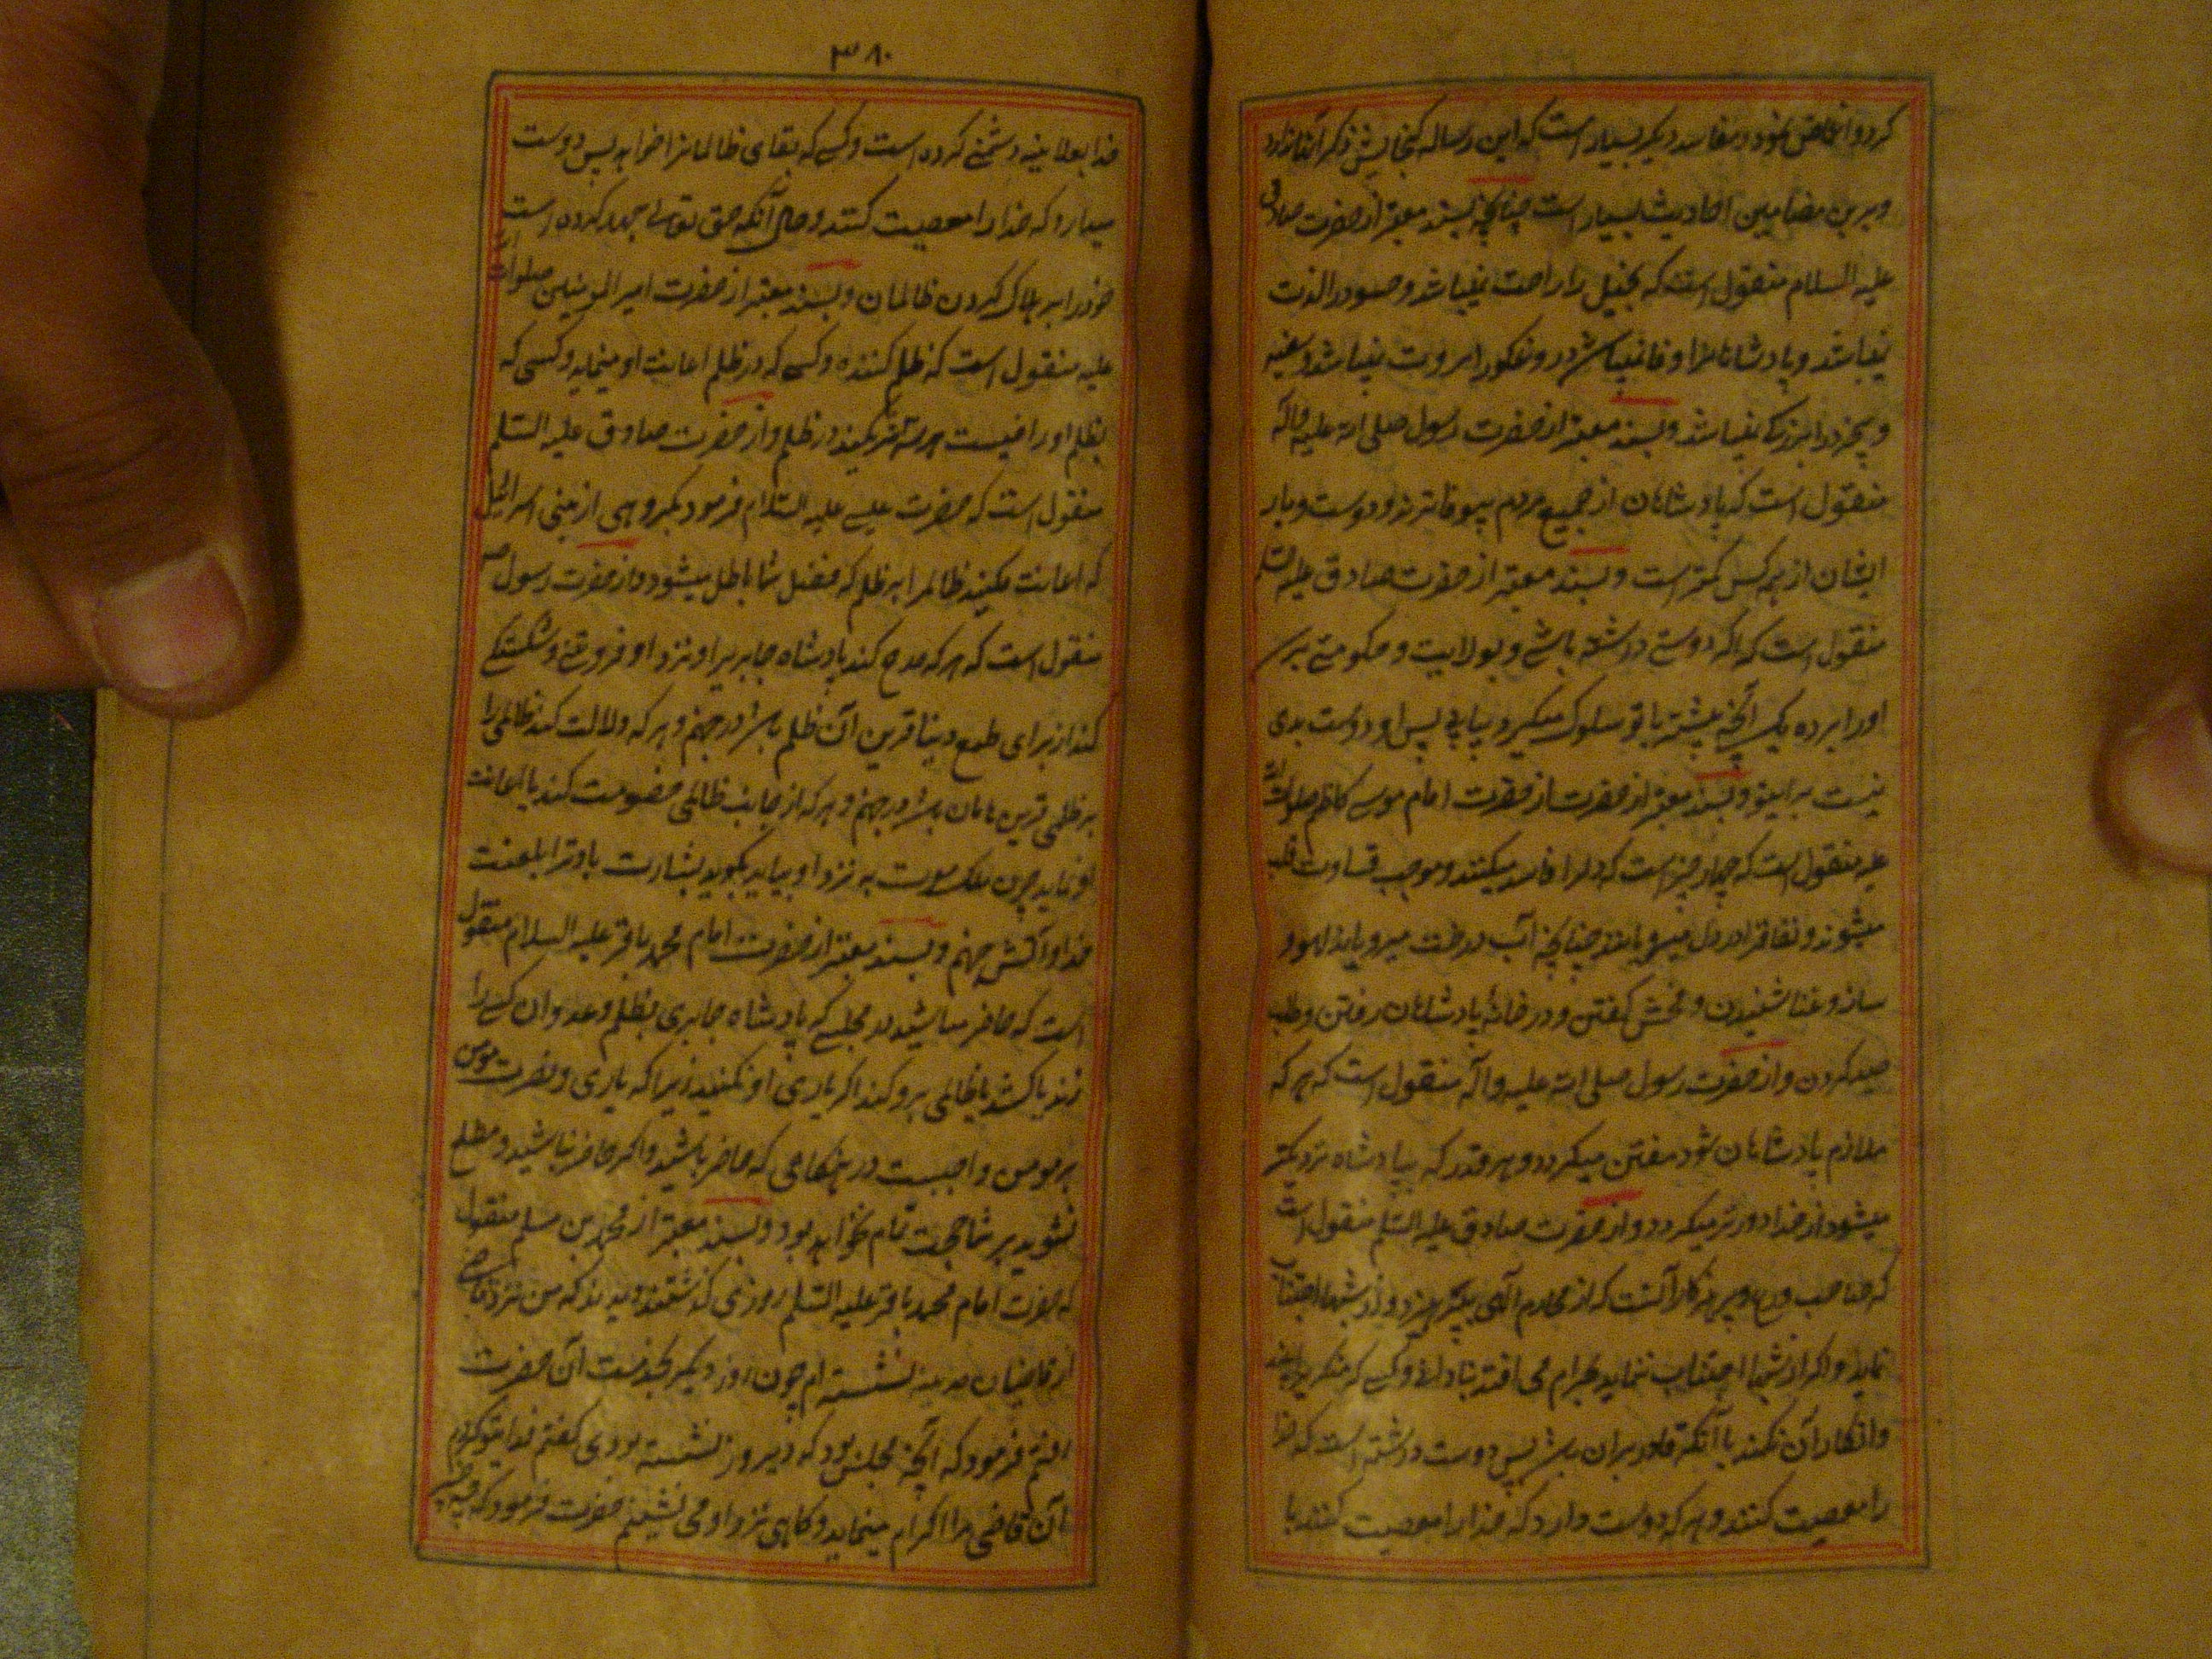 کرد و اغماض نمود و مفاسد دیگر بسیار است که این رساله گنجایش ذکر آنها ندارد
و برین مضامین احادیث بسیار است چنانچه بسند معتبر از حضرت صادق
علیه السلام منقول است که بخیل را راحت نمیباشد و حسود را لذت
نمیباشد و پادشاهانرا وفا نمیباشد و دروغگو را مروت نمیباشد و سفیه
و بیخرد را بزرگی نمیباشد و بسند معتبر از حضرت رسول صلی الله علیه وآله
منقول است که پادشاهان از جمیع مردم بیوفاترند و دوست و یار
ایشان از همه کس کمتر است و بسند معتبر از حضرت صادق علیه السلم
منقول است که اکر دوستی داشته باشی و بولایت و حکومتی برسد
او را برده یک آنچه پیشتر با تو سلوک میکرد بیابی پس او دوست بدی
نیست برای تو و بسند معتبر از حضرت از حضرت امام موسی کاظم صلوات الله
علیه منقول است که چهار چیز است که دلرا فاسد میکنند و موجب قساوت قلب
میشوند و نفاقرا در دل میرویانند چنانچه آب درخت میرویاند لهو و
ساز و غنا شنیدن و فحش گفتن و در خانهٔ پادشاهان رفتن و طلب
صید کردن و از حضرت رسول صلی الله علیه وآله منقول است که هر که
ملازم پادشاهان شود مفتن میکردد و هر قدر که بپادشاه نزدیکتر
میشود از خدا دورتر میکردد و از حضرت صادق علیه السلم منقول است
که صاحب ورع و پرهیزکار آنست که از محارم الهی بپرهیزد و از شبهها اجتناب
نماید و اکر از شبهها اجتناب ننماید بحرام می افتد بنادانی و کسی که منکر یرا بیند
و انکار آن نکند با آنکه قادر بر آن باشد پس دوست داشته است که خدا
را معصیت کنند و هر که دوست دارد که خدا را معصیت کنند با
۳۸۰
خدا بعلانیه دشمنی کرده است و کسی که بقای ظالمانرا خواهد پس دوست
میدارد که خدا را معصیت کنند و حال آنکه حق تعالی حمد کرده است
خود را بر هلاک کردن ظالمان و بسند معتبر از حضرت امیر المومنین صلوات الله
علیه منقول است که ظلم کننده و کسی که در ظلم اعانت او مینماید و کسی که
بظلم او راضیست هر سه شریکیند در ظلم و از حضرت صادق علیه السلم
منقول است که حضرت عیسی علیه السلام فرمود بکروهی از بنی اسرائیل
که اعانت مکنید ظالمرا بر ظلم که فضل شما باطل میشود و از حضرت رسول ص
منقول است که هر که مدح کند پادشاه جابریرا و نزد او فروتنی و شکستکی
کند از برای طمع دنیا قرین آن ظلم باشد در جهنم و هر که دلالت کند ظالمی را
بر ظلمی قرین هامان باشد در جهنم و هر که از جانب ظالمی خصومت کند یا اعانت
او نماید چون ملک موت به نزد او بیاید بکوید بشارت باد ترا بلعنت
خدا و آتش جهنم و بسند معتبر از حضرت امام محمد باقر علیه السلام منقول
است که حاضر مباشید در مجلسی که پادشاه جابری بظلم و عدوان کسی را
زند یا کشد یا ظالمی برو کند اکر یاری او نکنید زیرا که یاری و نصرت مومن
بر مومن واجبست در هنکامی که حاضر باشید و اکر حاضر نباشید و مطلع
نشوید بر شما حجت تمام نخواهد بود و بسند معتبر از محمد بن مسلم منقول
که حضرت امام محمد باقر علیه السلم روزی گذشتند و دیدند که من نزد قاضی
از قاضیان مدینه نشسته ام چون روز دیکر بخدمت آن حضرت
رفتم فرمود که آنچه مجلس بود که دیروز نشسته بودی گفتم فدای تو کردم
آن قاضی مرا اکرام مینماید و کاهی نزد او می نشینم حضرت فرمود که چه چیز